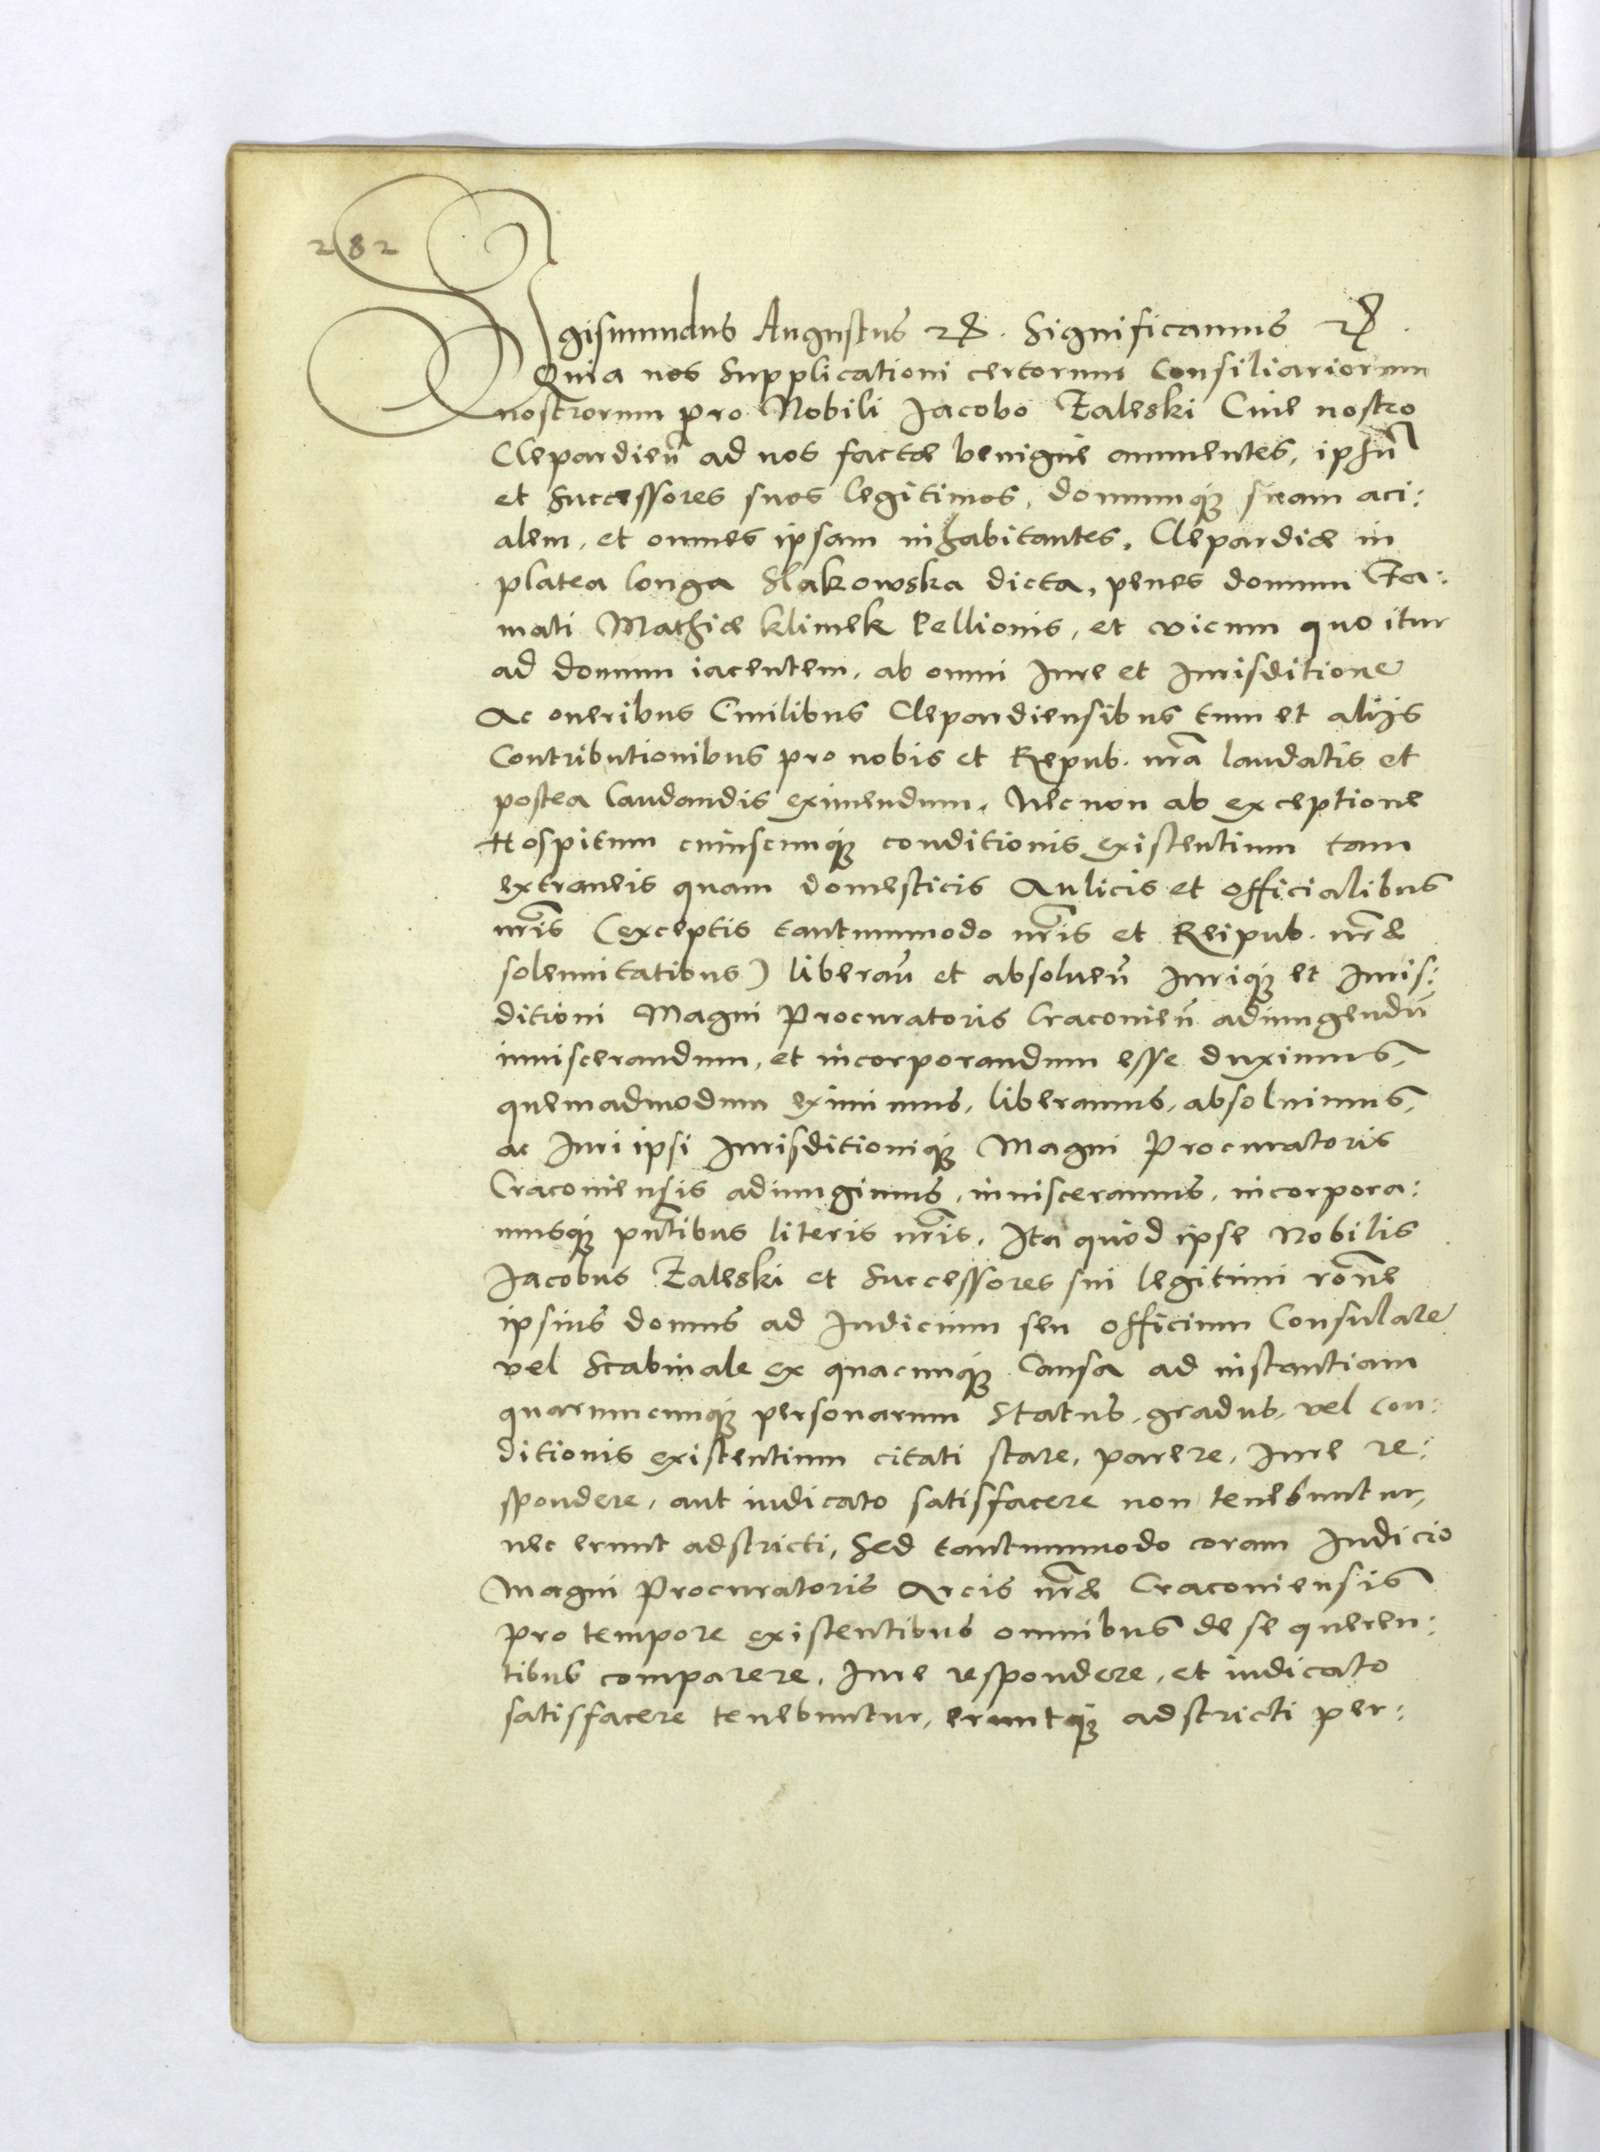 282
Sigismundus Augustus etc. Significamus etc.
Quia nos Supplicationi certorum Consiliariorum
nostrorum pro Nobili Jacobo Zaleski Ciue nostro
Clepardień ad nos factæ benigne annuentes, ipsũ
et Successores suos legitimos, domumq́ue suam aci:
alem, et omnes ipsam inhabitantes, Clepardiæ in
platea longa Slakowska dicta, penes domum Fa:
mati Mathiæ Klimek Pellionis, et vicum quo itur
ad domum iacentem, ab omni Iure et Jurisditione
Ac oneribus Ciuilibus Clepardiensibus tum et alijs
Contributionibus pro nobis et Repub. nrã laudatis et
postea laudandis eximendum, Nec non ab exceptione
Hospitum cuiuscunq́ue conditionis existentium tam
extraneis quam domesticis Aulicis et officialibus
nrĩs (exceptis tantummodo nrĩs et Reipub. nrãe
solennitatibus) liberań et absolueń Iuriq́ue et Iuris:
ditioni Magni Procuratoris Cracovień adiungendũ
inuiscerandum, et incorporandum esse duximus,
quemadmodum eximimus, liberamus, absoluimus,
ac Iuri ipsi Jurisditioniq́ue Magni Procuratoris
Cracouiensis adiungimus, inuisceramus, incorpora:
musq́ue pñtibus literis nrĩs. Ita quod ipse Nobilis
Jacobus Zaleski et Successores sui legitimi rõne
ipsius domus ad Iudicium seu officium Consulare
vel Scabinale ex quacunq́ue Causa ad instantiam
quarumcunq́ue personarum Status, gradus, vel con:
ditionis existentium citati stare, parere, Iure re:
spondere, aut iudicato satisfacere non tenebuntur,
nec erunt adstricti, Sed tantummodo coram Iudicio
Magni Procuratoris Arcis nrãe Cracouiensis
pro tempore existentibus omnibus de se queren:
tibus comparere, Iure respondere, et iudicato
satisfacere tenebuntur, eruntq́ue adstricti per: